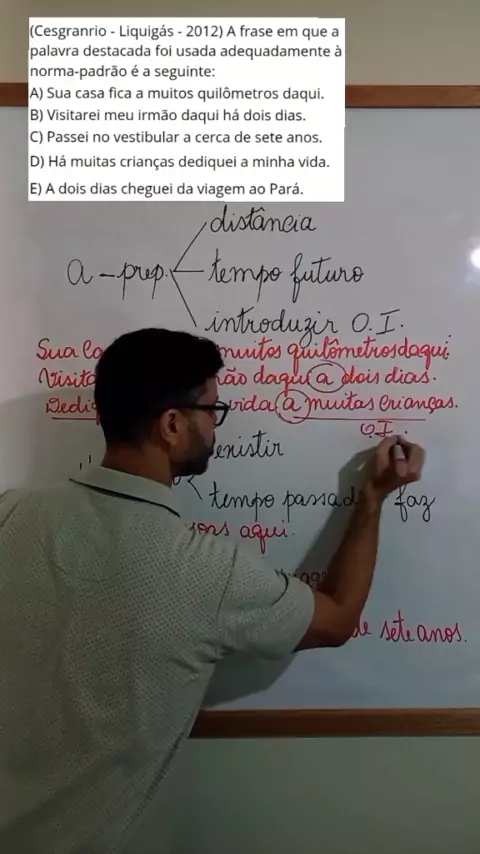 (Cesgranrio - Liquigás - 2012) A frase em que a
palavra destacada foi usada adequadamente à
norma-padrão é a seguinte:
A) Sua casa fica a muitos quilômetros daqui.
B) Visitarei meu irmão daqui há dois dias.
C) Passei no vestibular a cerca de sete anos.
D) Há muitas crianças dediquei a minha vida.
E) A dois dias cheguei da viagem ao Pará.
distância
a - prep. tempo futuro
introduzir O.I.
Sua muitos quilômetros daqui.
daqui a dois dias.
vida a muitas crianças.
O.I.
existir
tempo passado faz
aqui.
sete anos.